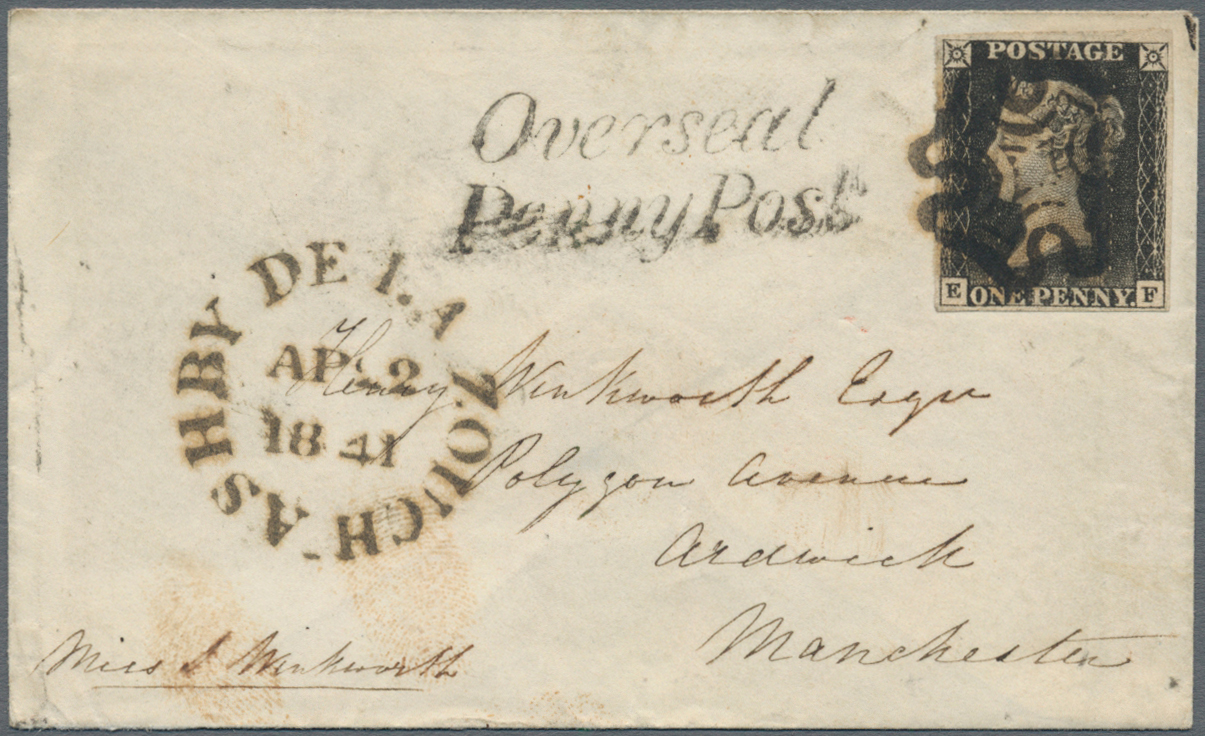 POSTAGE
Overseal
Penny Post
E ONE PENNY. F
ASHBY DE LA ZOUCH
AP 2
1841
Henry Winkworth Esqre
Polygon Avenue
Ardwick
Manchester
Miss S Winkworth